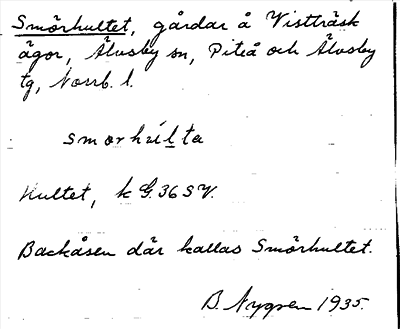 Smörhultet, gårdar å Vistträsk
ägor, Älvsby sn, Piteå och Älvsby
tg, Norrb. l.
smørhúlta
Hultet, k G. 36 SV.
Backåsen där kallas Smörhultet.
B. Nygren 1935.